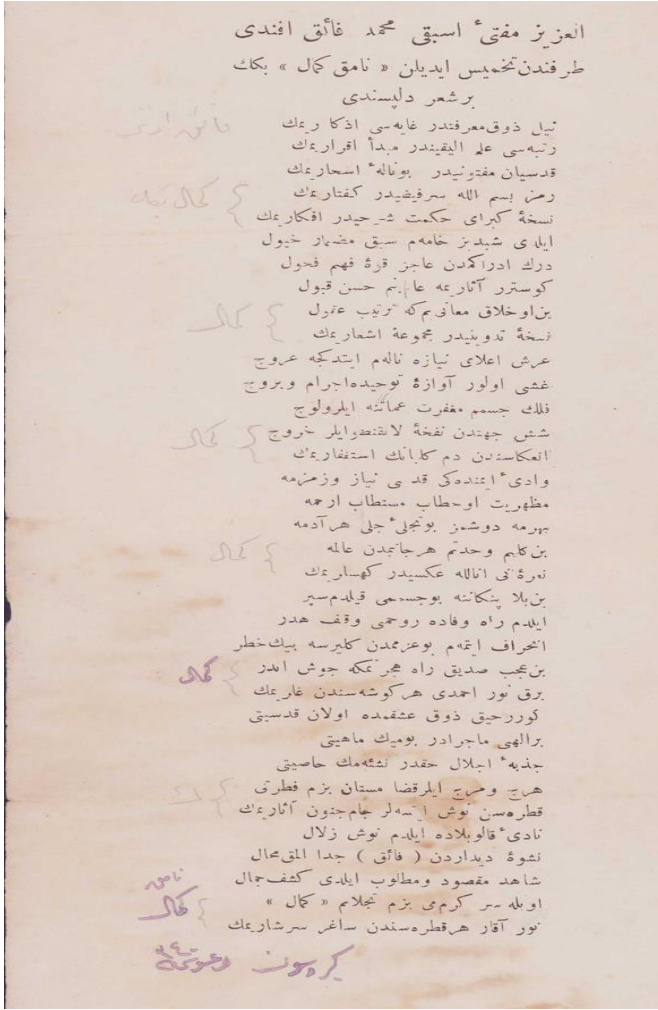 العزیز مفتیٔ اسبقی محمد فائق افندی
طرفندن تخمیس ایدیلن « نامق کمال » بکك
بر شعر دلپسندی
نیل ذوق معرفتدر غایه‌سی اذکاریمك
رتبه‌سی علم الیقیندر مبدأ اقراریمك
قدسیان مفتونیدر بونالهٔ اسحاریمك
رمز بسم الله سرفیضیدر کفتاریمك
نسخهٔ کبرای حکمت شرحیدر افکاریمك
ایلدی شبدیز خامه‌م سبق مضمار خیول
درك ادراکمدن عاجز قوهٔ فهم فحول
کوسترر آثاریمه عالم حسن قبول
بن او خلاق معانی‌یم که ترتیب عقول
نسخهٔ تدوینیدر مجموعهٔ اشعاریمك
عرش اعلای نیازه ناله‌م ایتدکجه عروج
غشی اولور آوازهٔ توحیده اجرام وبروج
فلك جسمم مغفرت عماننه ایلر ولوج
شش جهتدن نفخهٔ لاتقنطو ایلر خروج
انعکاسندن دم استغفاریمك
وادیٔ ایمنده‌کی قدسی نیاز وزمزمه
مظهریت اوخطاب مستطاب ارحمه
بهرمه دوشمز بوتجلیٔ جلی هر آدمه
بن کلیم وحدتم هر جانبمدن عالمه
نعرهٔ انی اناالله عکسیدر کهساریمك
بن بلا پیکاننه بوجسممی قیلدم سپر
ایلدم راه وفاده روحمی وقف هدر
انحراف ایتمه‌م بوعزممدن کلیرسه بیك خطر
بن عجب صدیق راه هجرتمکه جوش ایدر
برق نور احمدی هر کوشه‌سندن غاریمك
کورر حیق ذوق عشقمده اولان قدسیتی
بر الهی ماجرادر بومیك ماهیتی
جذبهٔ اجلال حقدر نشئه‌مك خاصیتی
هرج ومرج ایلر قضا مستان بزم فطرتی
قطره‌سن نوش ایتسه‌لر جام جنون آثاریمك
نادیٔ قالوبلاده ایلدم نوش زلال
نشوهٔ دیداردن ( فائق ) جدا المق محال
شاهد مقصود ومطلوب ایلدی کشف جمال
اویله سر کرمی بزم تجلایم « کمال »
نور آقار هر قطره‌سندن ساغر سرشاریمك
فائق افندی
کمال بك
کمال
کمال
کمال
کمال
نامق
کمال